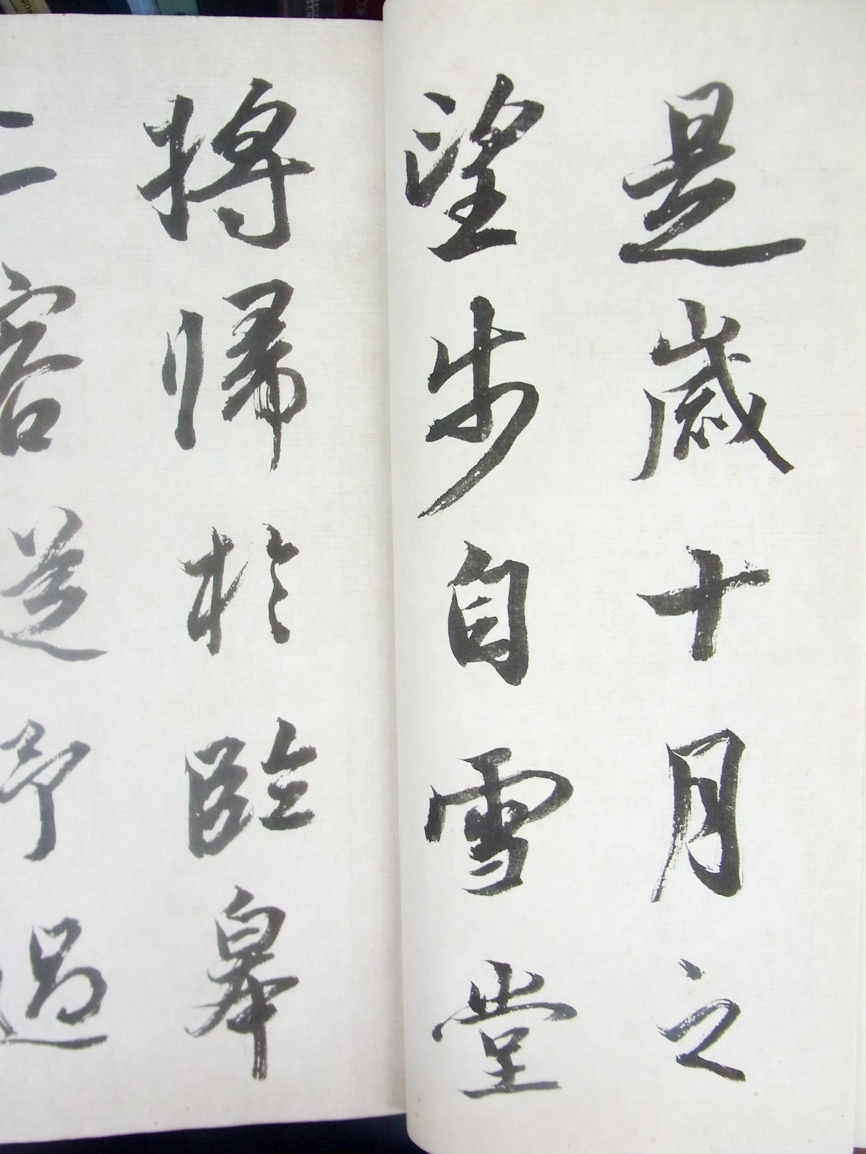 是歲十月之
望步自雪堂
將歸於臨皋
二客從予過